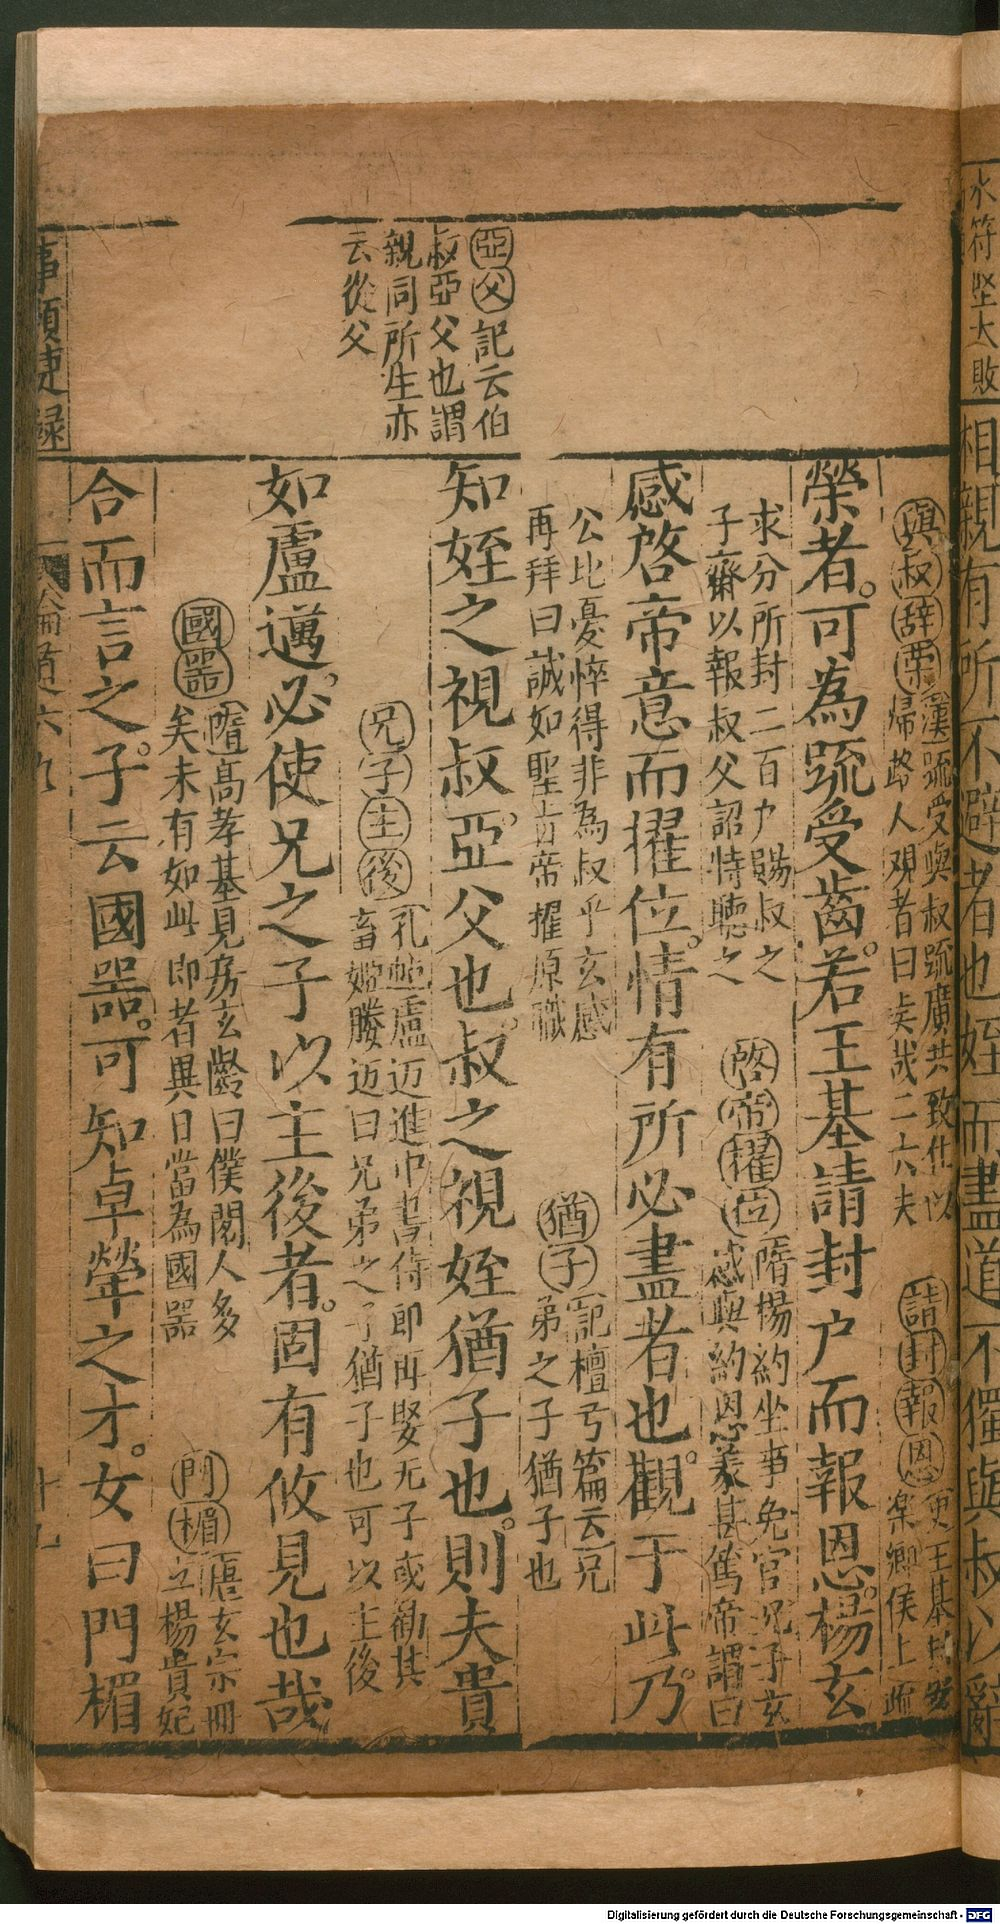 水符坚大敗
相親有所不避者也姪而盡道不獨與叔以辭
亞父記云伯
叔亞父也謂
親同所生亦
云從父
與叔辞荣漢䟽受與叔䟽廣共致仕以
歸路人观者曰矣哉二六夫
請封報恩史王基
楽卿侯上疏
榮者。可為䟽受齒。若王基請封户而報恩。楊玄
求分所封二百户賜叔之
子喬以報叔父詔特聽之
啓帝擢位隋楊約坐事免官兄子玄
感與約恩義甚篤帝謂曰
感啓帝意而擢位。情有所必盡者也。觀于此。乃
公比憂悴得非為叔乎玄感
再拜曰誠如聖旨帝擢原職
猶子記檀弓篇云兄
弟之子猶子也
知姪之視叔。亞父也。叔之視姪猶子也。則夫貴
兄子主後孔帖盧迈進中書侍郎再娶无子或勸其
畜姬媵迈曰兄弟之子猶子也可以主後
如盧邁。必使兄之子以主後者。固有攸見也哉
國器隋高孝基見房玄齡曰僕閱人多
矣未有如此郎者異日當為國器
門楣唐玄宗冊
立楊貴妃
合而言之。子云國器。可知卓犖之才。女曰門楣
事類捷録
倫道六九
十九
Digitalisierung gefördert durch die Deutsche Forschungsgemeinschaft - DFG